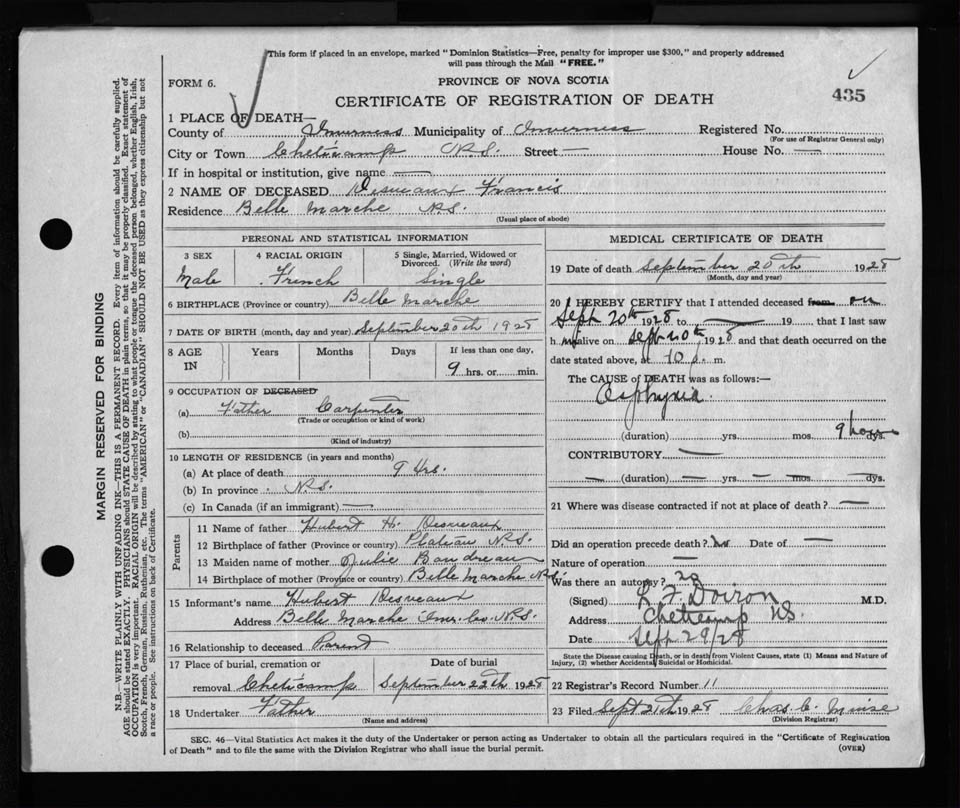 This form if placed in an envelope, marked "Dominion Statistics—Free, penalty for improper use $300," and properly addressed
will pass through the Mail "FREE."
FORM 6.
PROVINCE OF NOVA SCOTIA
435
CERTIFICATE OF REGISTRATION OF DEATH
1 PLACE OF DEATH—
County of Inverness Municipality of Inverness Registered No.
(For use of Registrar General only)
City or Town Cheticamp N.S. Street — House No. —
If in hospital or institution, give name —
2 NAME OF DECEASED Desveaux Francis
Residence Belle Marche N.S.
(Usual place of abode)
PERSONAL AND STATISTICAL INFORMATION
3 SEX 4 RACIAL ORIGIN 5 Single, Married, Widowed or Divorced. (Write the word)
Male French Single
6 BIRTHPLACE (Province or country) Belle Marche
7 DATE OF BIRTH (month, day and year) September 20th 1928
8 AGE IN Years Months Days If less than one day,
9 hrs. or min.
9 OCCUPATION OF DECEASED
(a) Father Carpenter
(Trade or occupation or kind of work)
(b)
(Kind of industry)
10 LENGTH OF RESIDENCE (in years and months)
(a) At place of death 9 Hrs.
(b) In province N.S.
(c) In Canada (if an immigrant) —
Parents
11 Name of father Hubert H. Desveaux
12 Birthplace of father (Province or country) Plateau N.S.
13 Maiden name of mother Julie Boudreau
14 Birthplace of mother (Province or country) Belle Marche N.S.
15 Informant's name Hubert Desveaux
Address Belle Marche Inv. Co. N.S.
16 Relationship to deceased Parent
17 Place of burial, cremation or Date of burial
removal Cheticamp September 22th 1928
18 Undertaker Father
(Name and address)
MEDICAL CERTIFICATE OF DEATH
19 Date of death September 20th 1928
(Month, day and year)
20 I HEREBY CERTIFY that I attended deceased from on
Sept 20th 1928 to — 19 — that I last saw
h im alive on Sept 20th, 1928 and that death occurred on the
date stated above, at 10 p. m.
The CAUSE of DEATH was as follows:—
Asphyxia
(duration) yrs. mos. 9 hours dys.
CONTRIBUTORY —
— (duration) — yrs. — mos. — dys.
21 Where was disease contracted if not at place of death? —
Did an operation precede death? No Date of —
Nature of operation —
Was there an autopsy? no
(Signed) L F Doiron M.D.
Address Cheticamp NS.
Date Sept 29/28
State the Disease causing Death, or in death from Violent Causes, state (1) Means and Nature of
Injury, (2) whether Accidental, Suicidal or Homicidal.
22 Registrar's Record Number 11
23 Filed Sept 21th 1928 Chas. C. Muise
(Division Registrar)
SEC. 46—Vital Statistics Act makes it the duty of the Undertaker or person acting as Undertaker to obtain all the particulars required in the "Certificate of Registration
of Death" and to file the same with the Division Registrar who shall issue the burial permit.
(OVER)
MARGIN RESERVED FOR BINDING
N.B.—WRITE PLAINLY WITH UNFADING INK—THIS IS A PERMANENT RECORD. Every item of information should be carefully supplied.
AGE should be stated EXACTLY. PHYSICIANS should STATE CAUSE OF DEATH in plain terms, so that it may be properly classified. Exact statement of
OCCUPATION is very important. RACIAL ORIGIN will be described by stating to what people or tongue the deceased person belonged, whether English, Irish,
Scotch, French, German, Russian, Ruthenian, etc. The terms "AMERICAN" or "CANADIAN" SHOULD NOT BE USED as they express citizenship but not
a race or people. See instructions on back of Certificate.